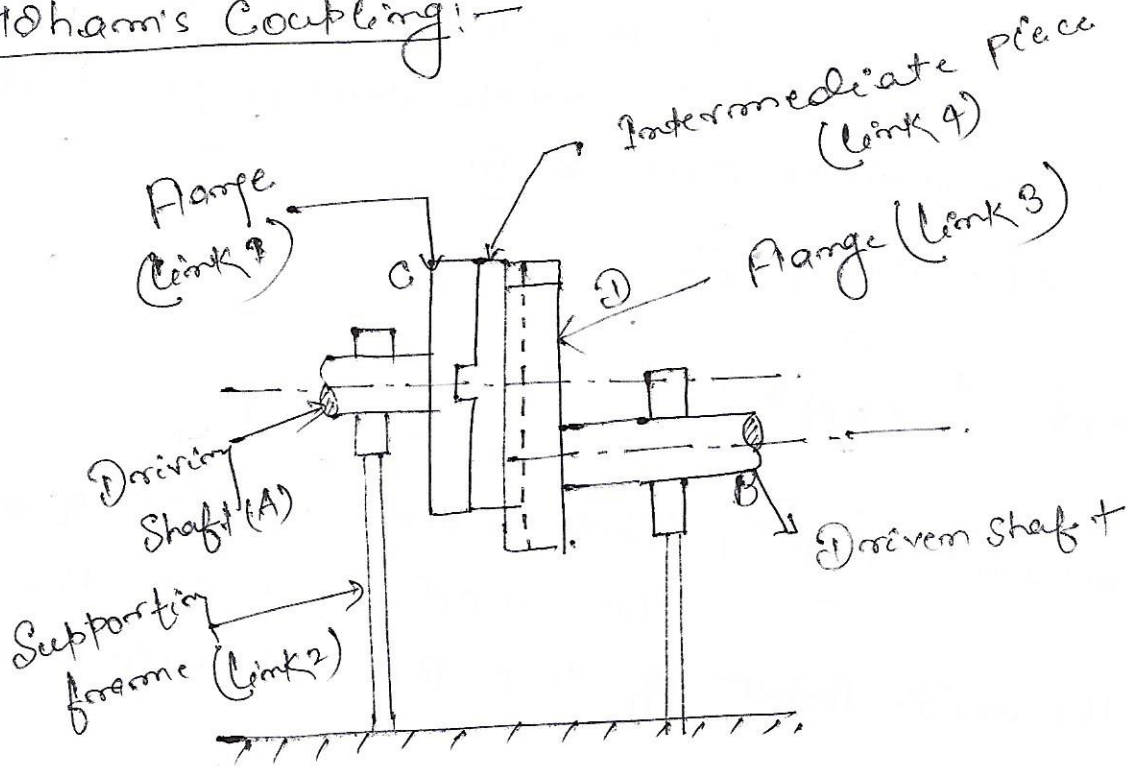 Oldham's Coupling:—
Intermediate piece
(Link 4)
Flange
(Link 1)
Flange (Link 3)
C
D
Driving
Shaft (A)
B
Driven Shaft
Supporting
frame (Link 2)